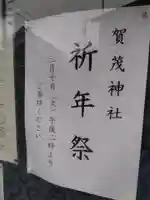 賀茂神社
祈年祭
二月十日（火）午後二時より
ご参拝ください